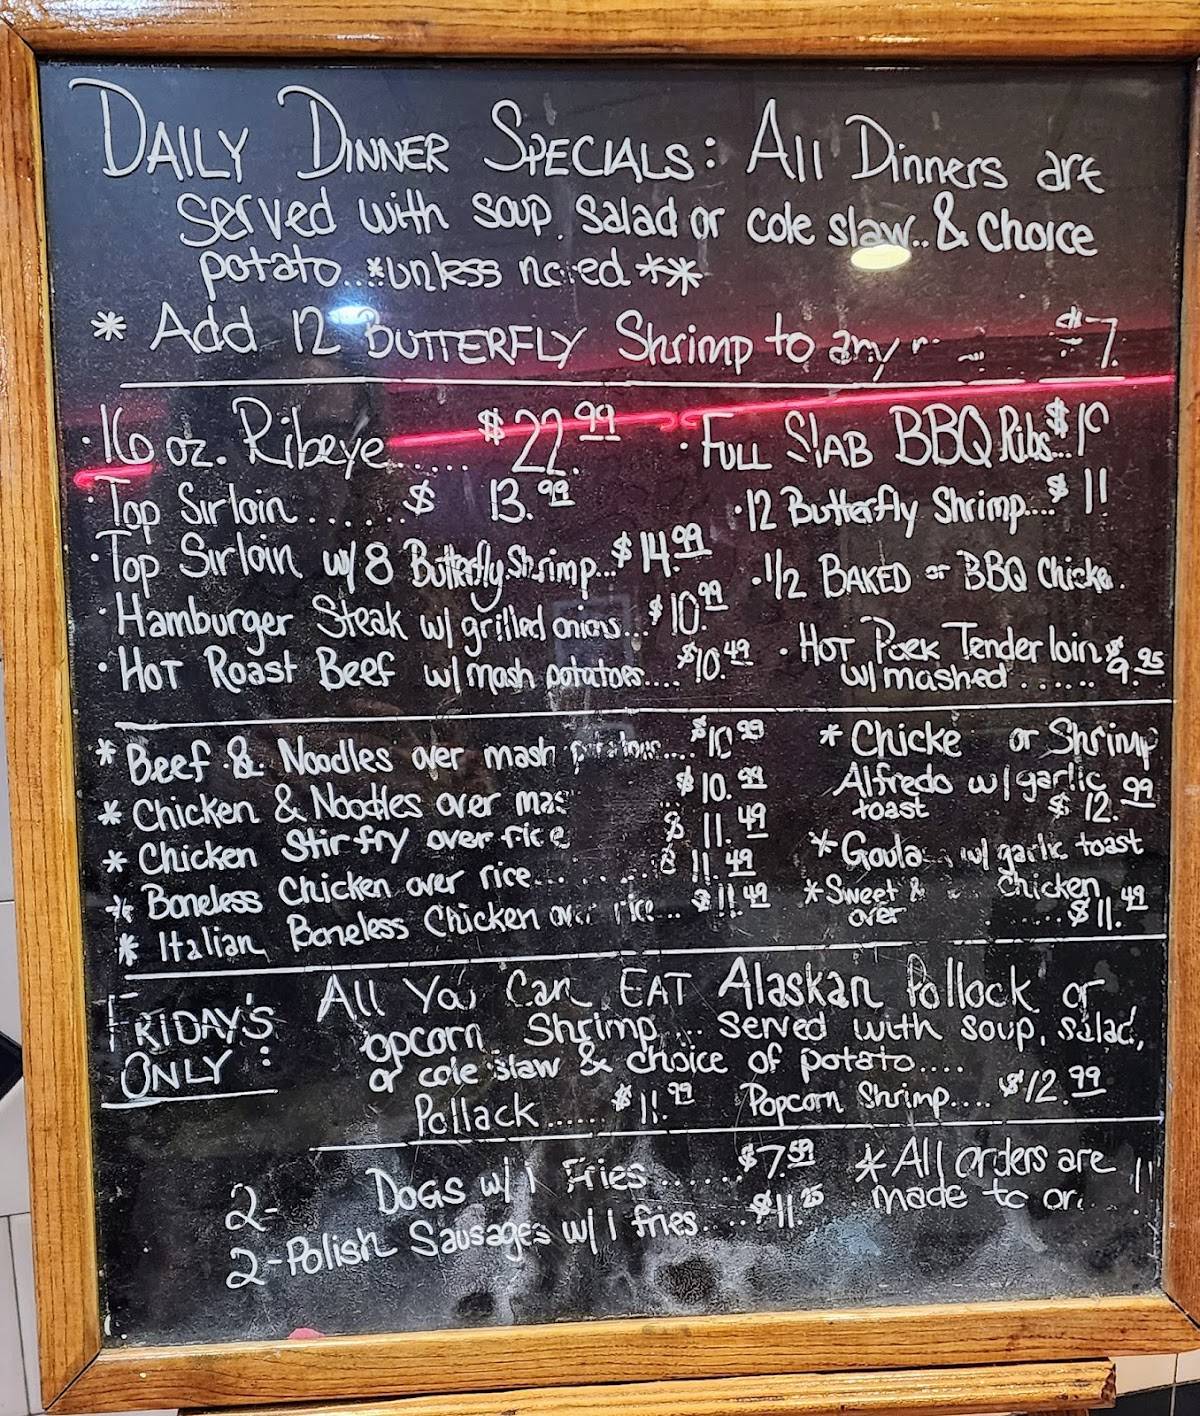 DAILY DINNER SPECIALS: All Dinners are
served with soup, salad or cole slaw..& choice
potato...*unless noted ***
* Add 12 BUTTERFLY Shrimp to any $7.
·16 oz. Ribeye....... $22.99
·Top Sirloin......$ 13.99
·Top Sirloin w/ 8 Butterfly Shrimp...$14.99
·Hamburger Steak w/ grilled onions...$10.99
·HOT Roast Beef w/ mash potatoes....$10.49
·FULL SLAB BBQ Ribs
·12 Butterfly Shrimp....$11
·1/2 BAKED or BBQ Chicke
·HOT Pork Tenderloin $9.95
w/ mashed......
*Beef & Noodles over mash potatoes...$10.99
* Chicken & Noodles over mas $10.99
* Chicken Stirfry over rice $11.49
* Boneless Chicken over rice......... $11.49
* Italian Boneless Chicken over rice... $11.49
* Chicke or Shrimp
Alfredo w/ garlic
toast $12.99
*Goula w/ garlic toast
*Sweet & Chicken
over ......$11.49
FRIDAY'S
ONLY :
All You Can EAT Alaskan Pollock or
opcorn Shrimp... served with soup, salad,
or cole slaw & choice of potato....
Pollack......$11.99 Popcorn Shrimp....$12.99
2- DOGS w/ 1 Fries......$7.59
2-Polish Sausages w/ 1 fries....$11.25
* All orders are
made to or